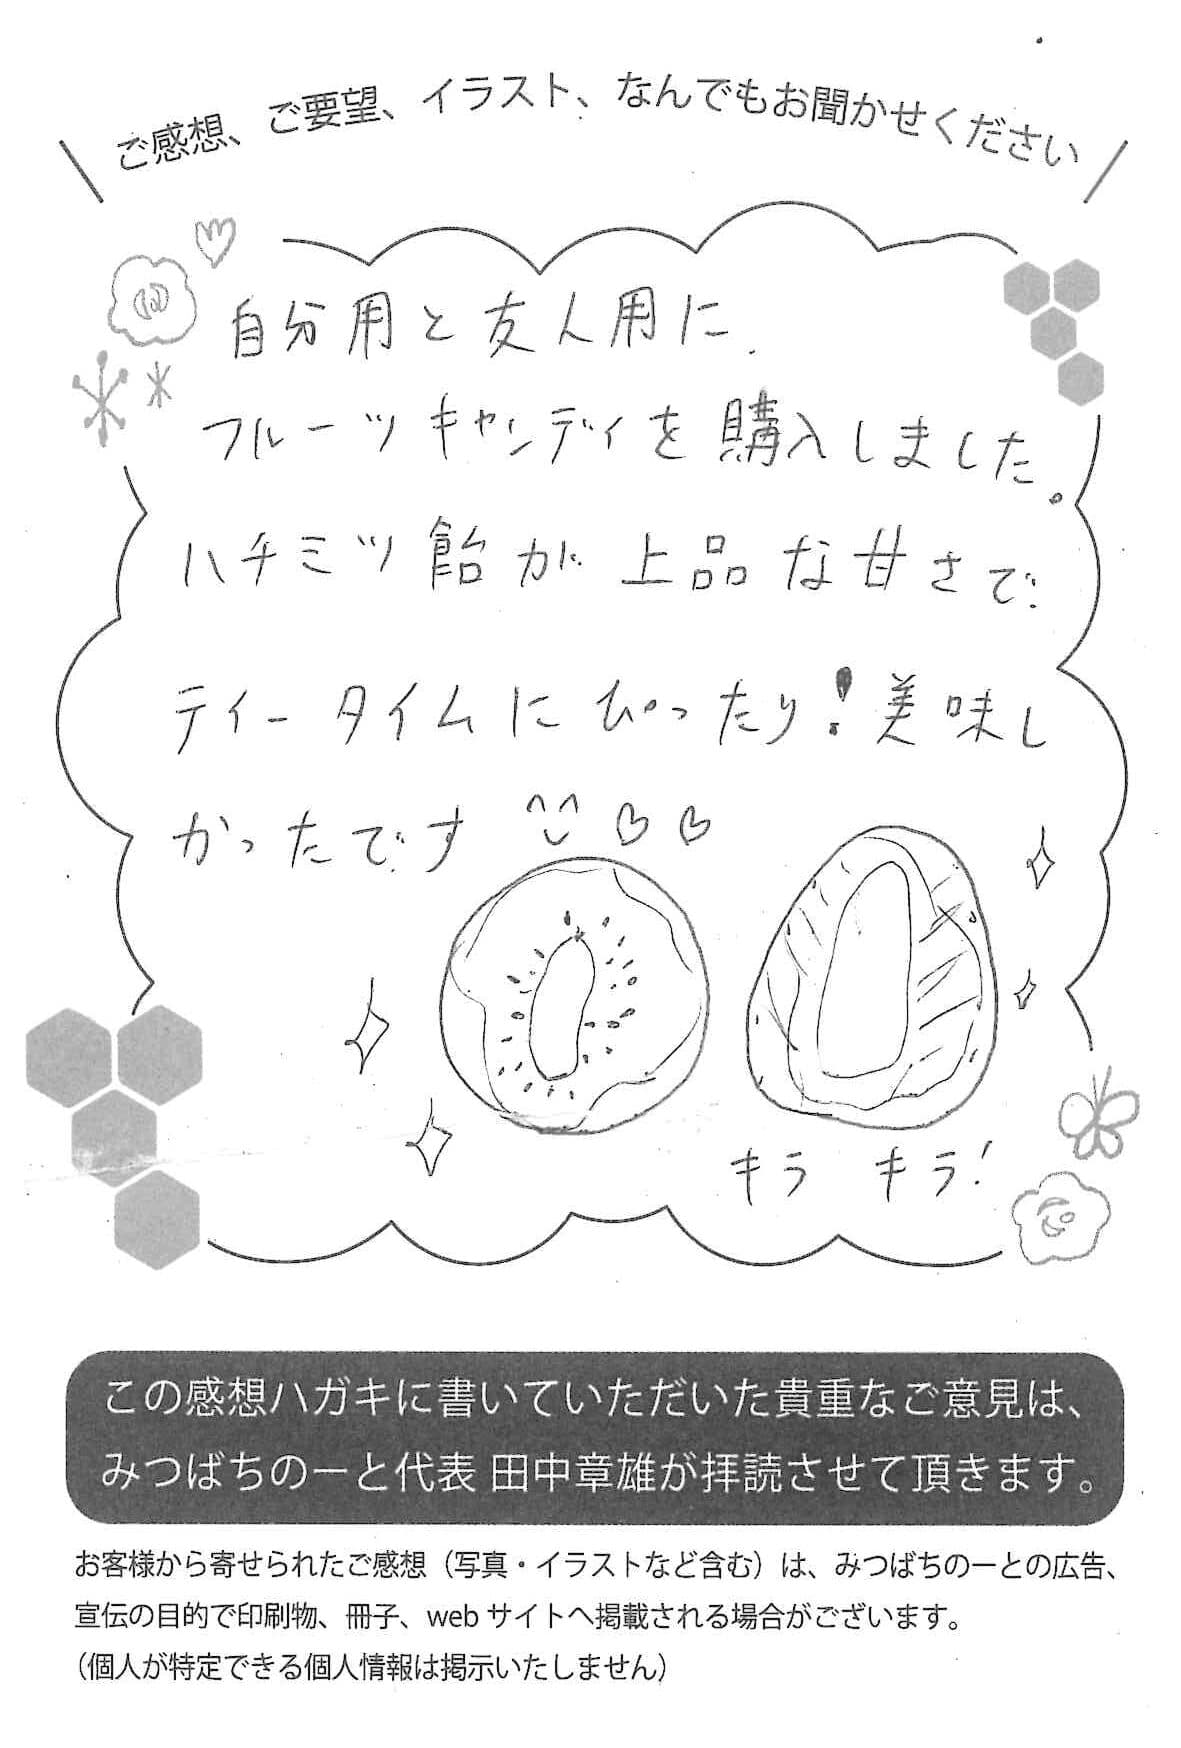 ご感想、ご要望、イラスト、なんでもお聞かせください
自分用と友人用に、
フルーツキャンディを購入しました。
ハチミツ飴が上品な甘さで、
ティータイムにぴったり!美味し
かったです
キラ キラ!
この感想ハガキに書いていただいた貴重なご意見は、
みつばちのーと代表 田中章雄が拝読させて頂きます。
お客様から寄せられたご感想（写真・イラストなど含む）は、みつばちのーとの広告、
宣伝の目的で印刷物、冊子、web サイトへ掲載される場合がございます。
（個人が特定できる個人情報は掲示いたしません）